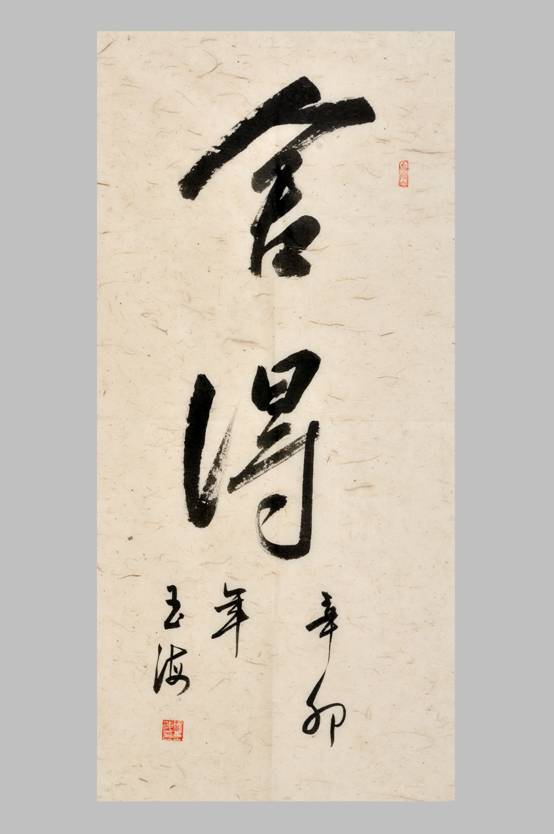 舍得
辛卯
年
玉海